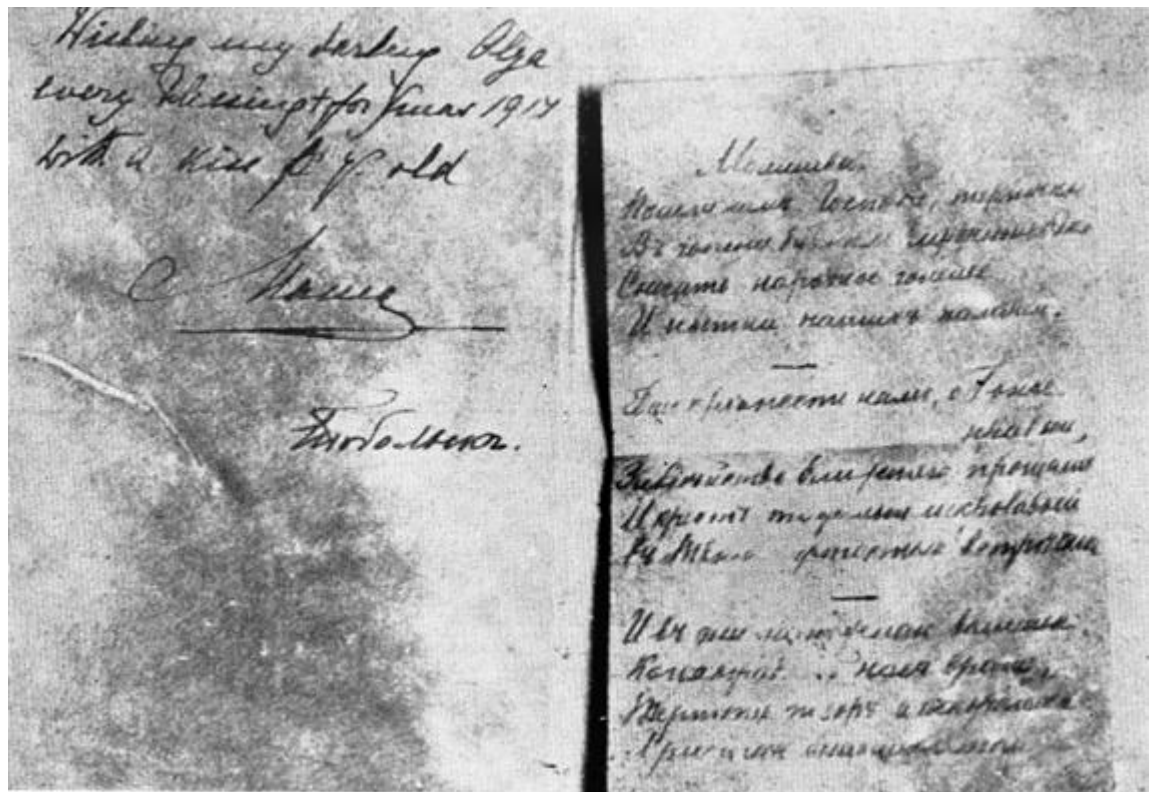 Wishing my darling Olga
every blessing for Xmas 1917
with a kiss fr. y. old
Мама
Тобольскъ.
Молитва.
Пошли намъ, Господи, терпѣнье
Въ годину
Сносить народное гоненье
И пытки нашихъ палачей.
Дай крѣпости намъ, о Боже
правый,
Злодѣйства ближняго прощать
И крестъ тяжелый и кровавый
встрѣчать
И въ дни волненья
Когда насъ враги,
Терпѣть позоръ и